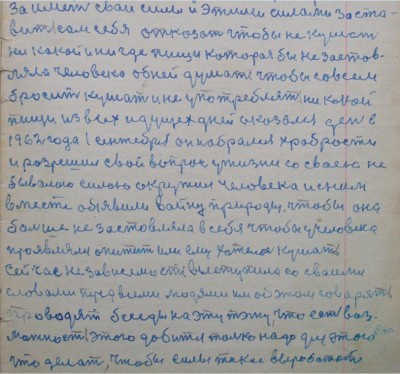 за имет сваи сили и этими силами заста
вит сам себя отказат чтобы не кушат
ни какой и нигде пищи которая бы не застов
ляла человека об ней думат чтобы совсем
бросит кушат и не употреблят ни какой
пищи из всех идущех дней оказался ден в
1962 года 1 сентебря он набрался храбрости
и розрешил свой вопрос у жизни со сваею не
бывалою силою окружил человека и с ним
вместе обявили вайну природу. чтобы она
болше не застовляла в себя чтобы у человека
проявлялся опитит или ему хотелос кушат
сейчас не зависемости выступила со сваими
словами перед всеми людями им об этом говарять
проводят беседы на эту тэму, что ест воз
можност этого добится толко надо для этого
что делат, чтобы силы такие выроботат